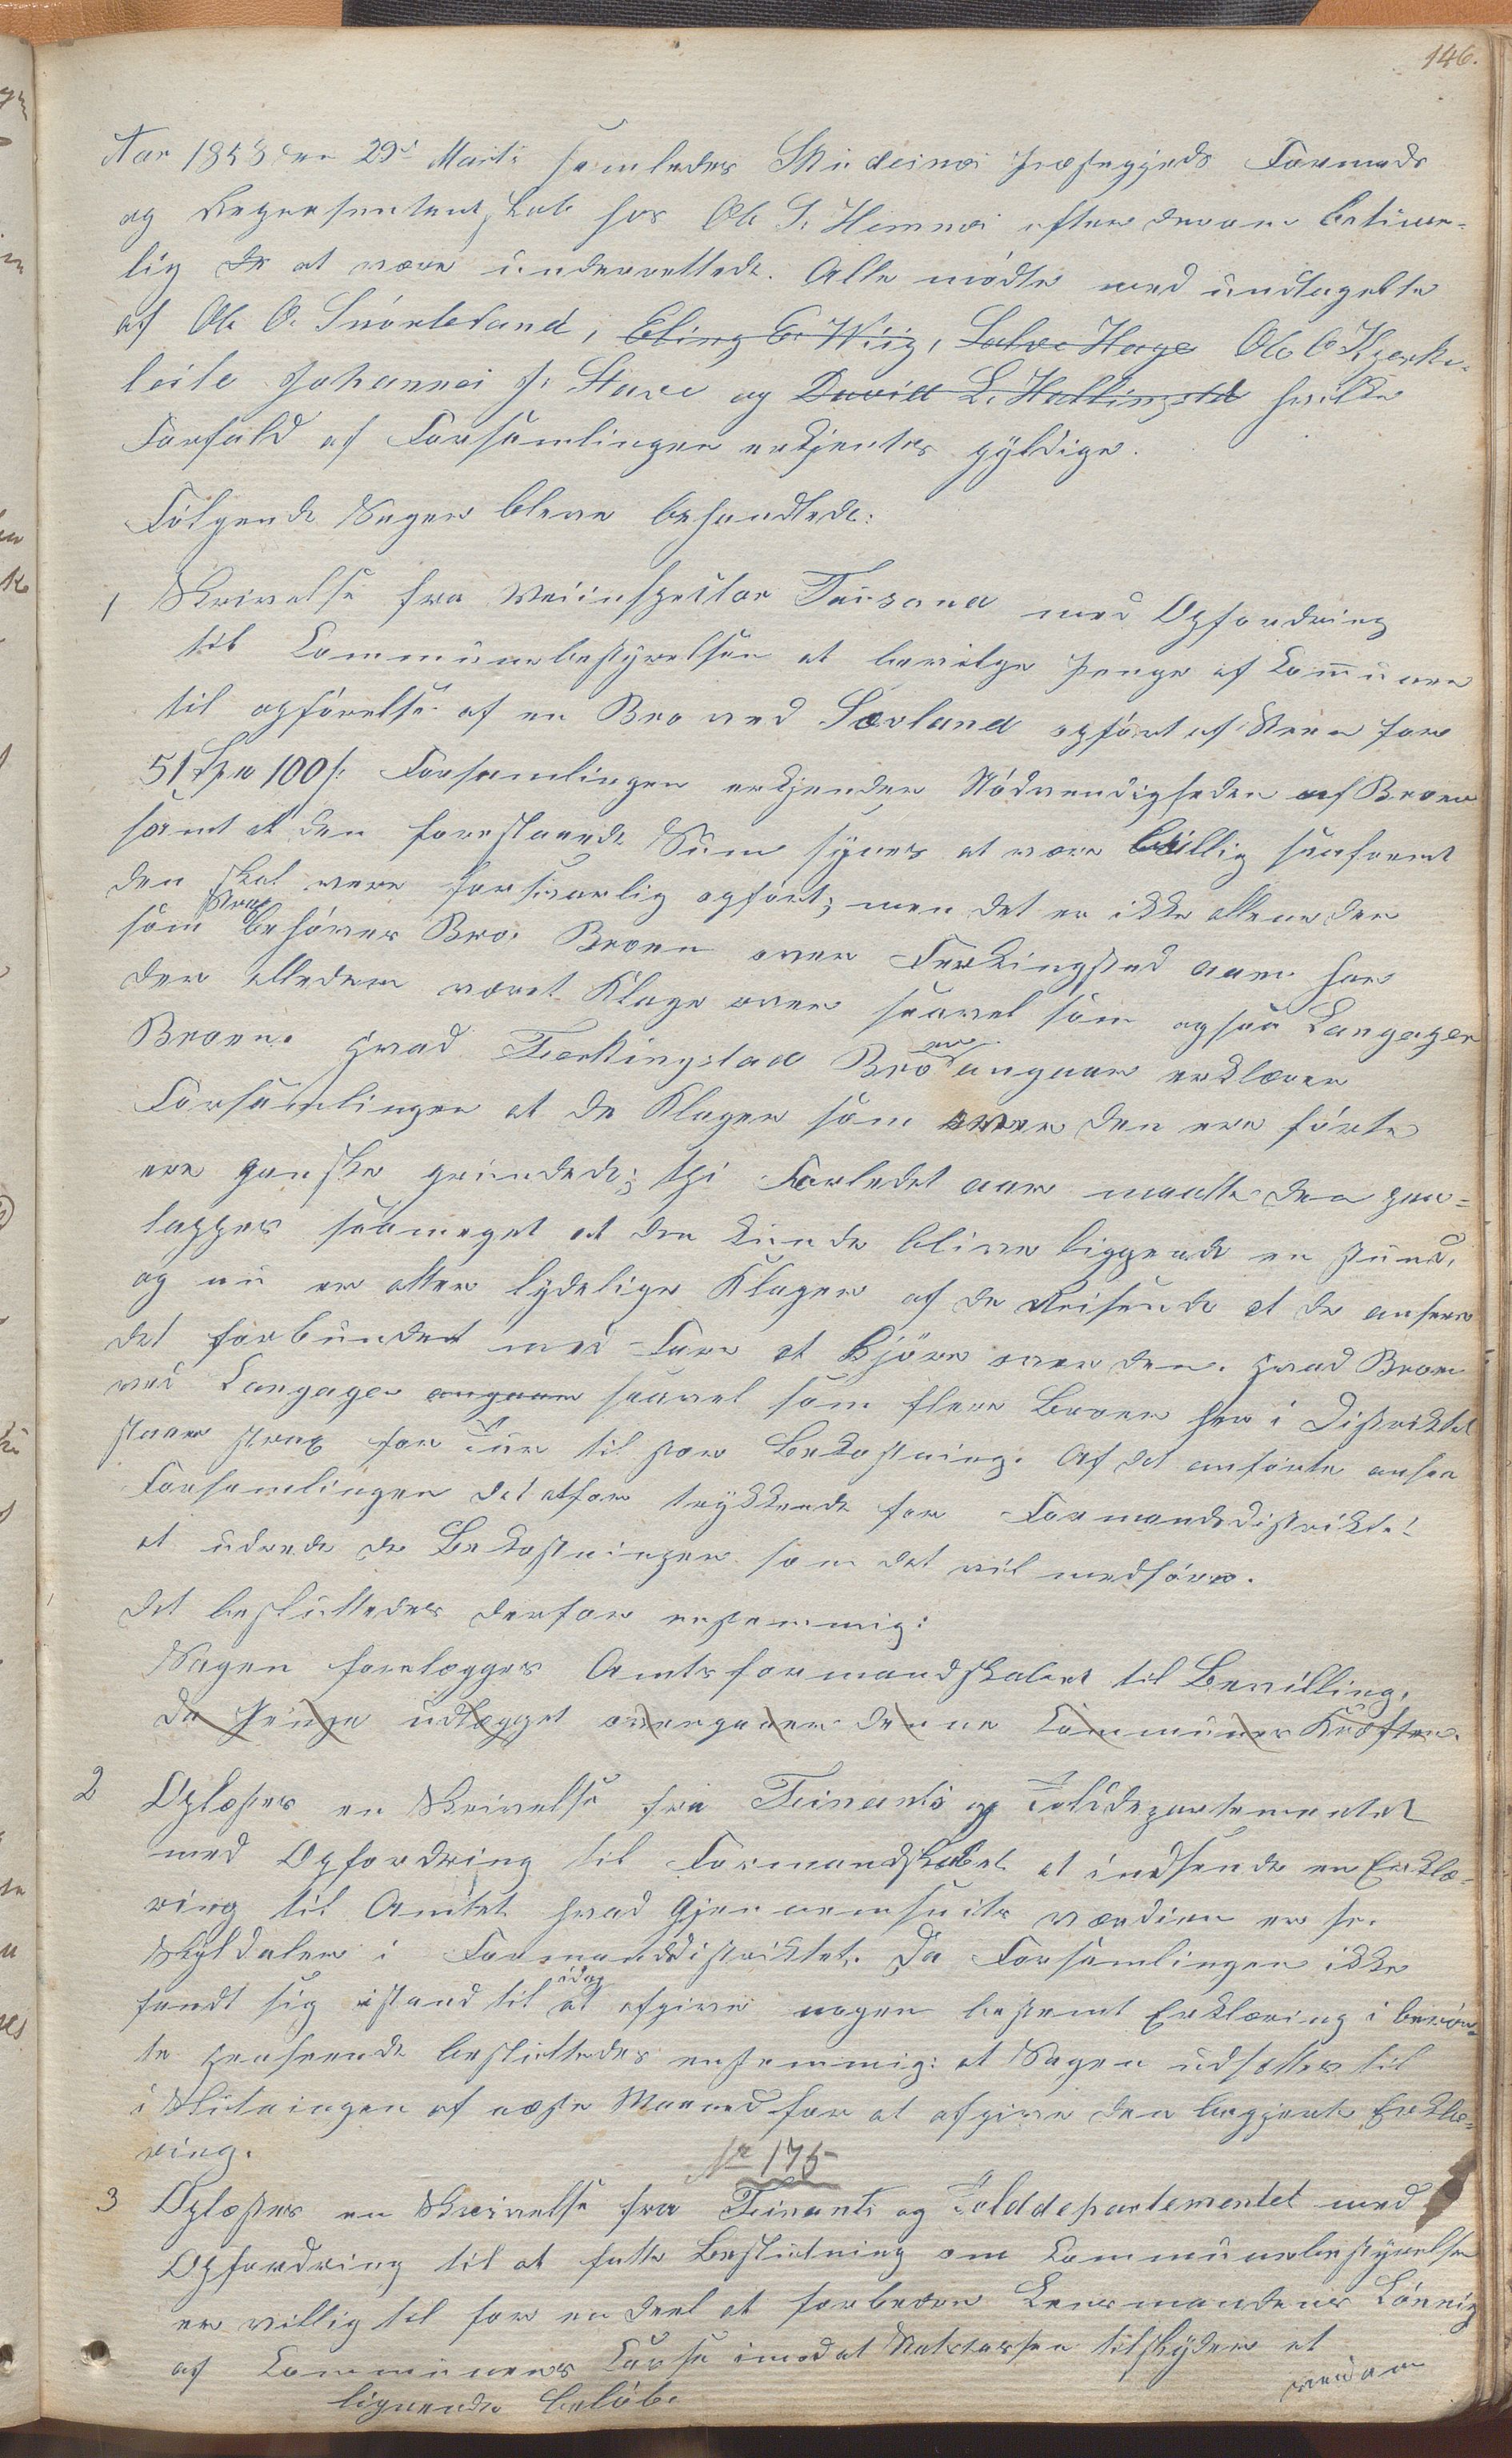 146.
Aar 1853 den 29de Marts samledes Skudesnæs Præstegjelds Formands
og Repræsentantskab hos Ole S. Hemnæs efter derom betime-
lig de at være underrettede. Alle mødte med undtagelse
af Ole O. Snörteland, Eling E. Wiig, Salve Hage Ole O Kjerke-
leite Johannes J. Stave og David L. Hallingstd hvilke
Forfald af Forsamlingen erkjentes gyldige.
Følgende Sager bleve behandlede:
1 Skrivelse fra Veiinspektor med Opfordring
til Communebestyrelsen at bevilge Penge af Communen
til opførelse af en Bro ved Sævland opført af Steen for
51 Spd 100 s. Forsamlingen erkjender Nødvendigheden af Broen
samt at den forestaaende Sum synes at være billig saafremt
den skal være forsvarlig opført; men det er ikke allene den
som strax behøver Bro. Broen over Ferkingstad aaen har
der allerede været Klage over saavel som ogsaa Langager
Broen. Hvad Ferkingstad Broen angaar erklærer
Forsamlingen at de Klager som over den ere førte
ere ganske grundede; thi Forledet aar maatte den paa-
lappes saameget at den kunde blive liggende en stund,
og nu er atter lydelige Klager af de Reisende at de anseer
det forbundet med Fare at Kjöre over den. Hvad Broen
ved Langager angaar saavel som flere Broer her i Distriktet
staar strax for Tur til stor Bekostning. Af det anførte anseer
Forsamlingen det altfor trykkende for Formandsdistriktet
at udrede de Bekostninger som det vil medføre.
Det besluttedes derfor enstemmig:
Sagen forelægges Amtsformandskabet til Bevilling,
da Penge udlægget overgaaer denne Communes Kræfter.
2 Oplæstes en Skrivelse fra Finants og Tolddepartementet
med Opfordring til Formandskabet at indsende en Erklæ-
ring til Amtet hvad Gjennemsnits værdien er pr.
Skyldaler i Formandsdistriktet. Da Forsamlingen ikke
fandt sig istand til idag at afgive nogen bestemt Erklæring i berør-
te henseende besluttedes enstemmig: at Sagen udsættes til
i Slutningen af næste Maaned for at afgive den begjærte Erklæ-
ring.
No 175
3 Oplæstes en Skrivelse fra Finants og Tolddepartementet med
Opfordring til at fatte Beslutning om Communebestyrelsen
er villig til for en deel at forbedre Lensmandens Lönning
af Communens Casse imod at Statskassen tilskyder et
lignende beløb.